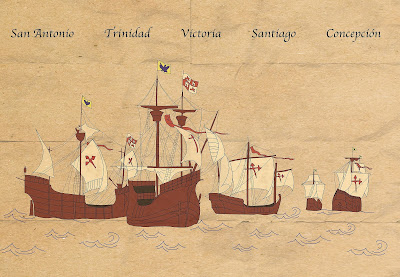 San Antonio Trinidad Victoria Santiago Concepción